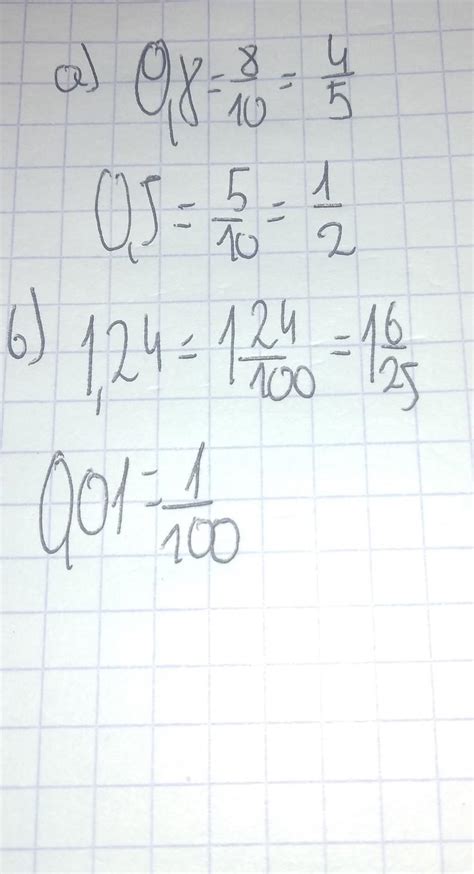 a) 0,8 = 8/10 = 4/5
0,5 = 5/10 = 1/2
b) 1,24 = 1 24/100 = 1 6/25
0,01 = 1/100